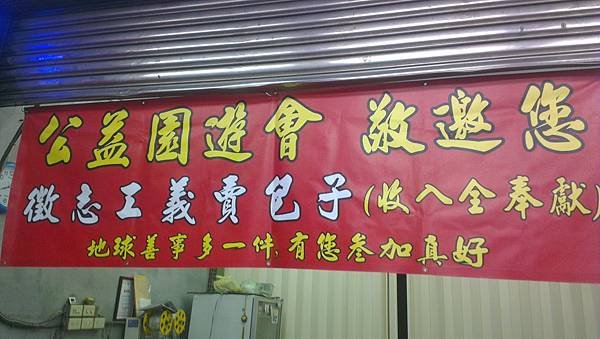 公益園遊會 敬邀您
徵志工義賣包子(收入全奉獻)
地球善事多一件,有您參加真好